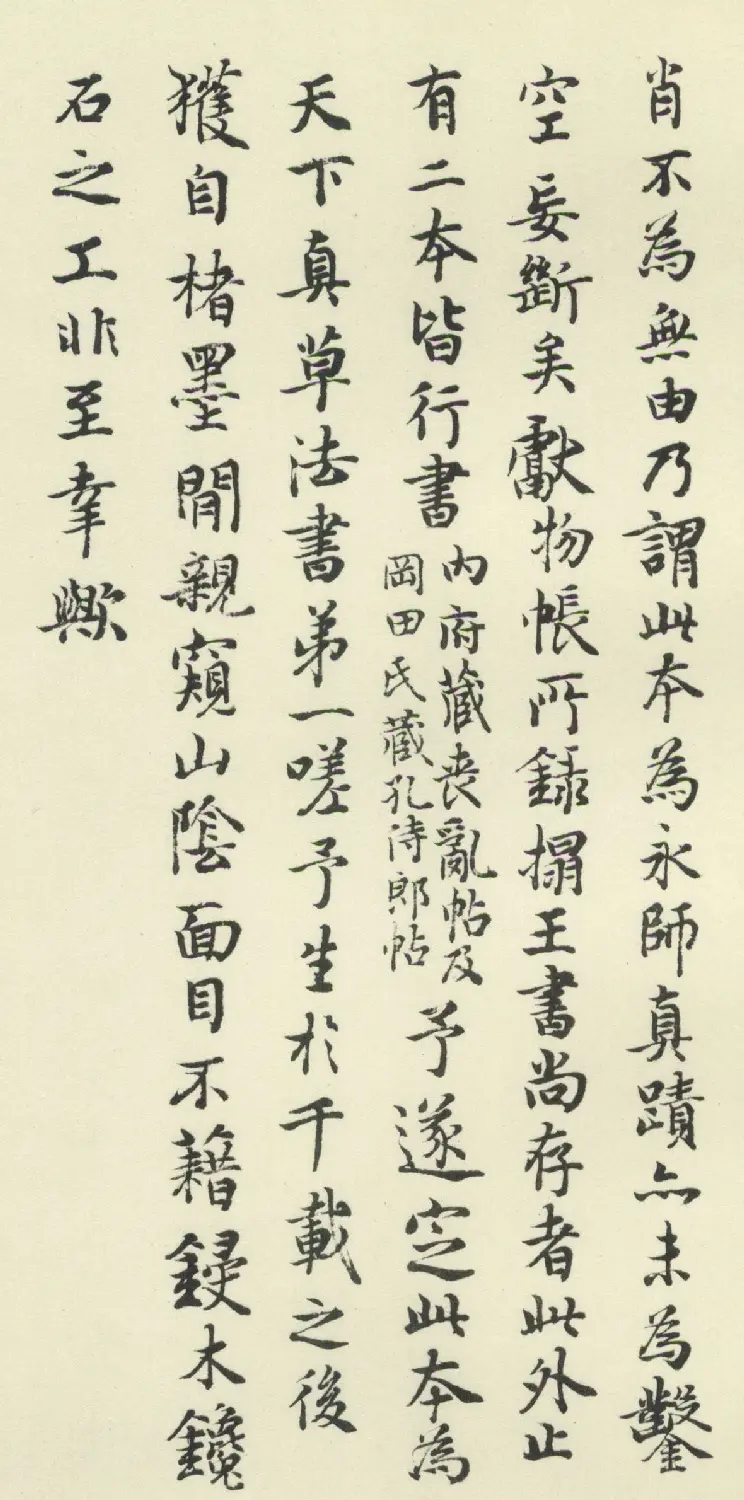 肖不為無由乃謂此本為永師真蹟亦未為鑿
空妄斷矣獻物帳所錄搨王書尚存者此外止
有二本皆行書內府藏喪亂帖及岡田氏藏孔侍郎帖予遂定此本為
天下真草法書第一嗟予生於千載之後
獲自楮墨閒親窺山陰面目不藉鋟木鑱
石之工非至幸歟